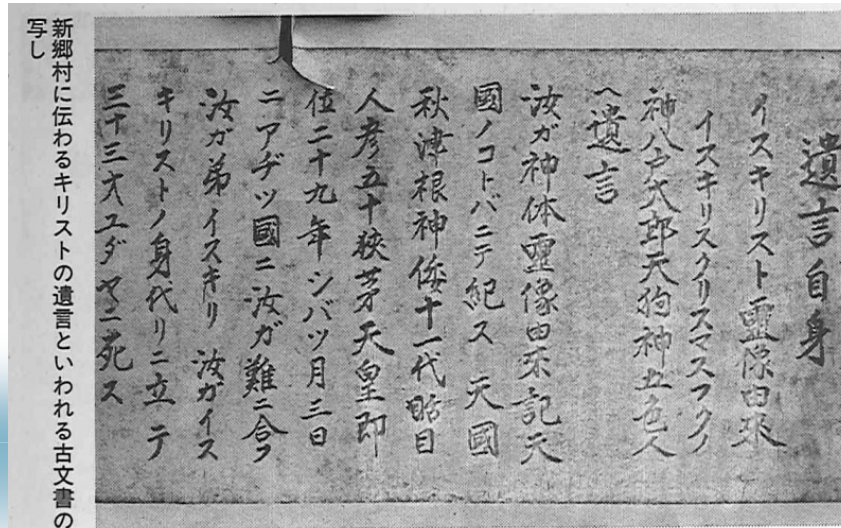 遺言自身
イスキリスト靈像由來
イスキリスクリスマスフクノ
神八戸太郎天狗神五色人
へ遺言
汝ガ神体靈像由来記天
國ノコトバニテ紀ス 天國
秋津根神倭十一代 目
人彦五十狹茅天皇即
位二十九年シバツ月三日
ニアヂツ國ニ汝ガ難ニ合フ
汝ガ弟イスキリ 汝ガイス
キリストノ身代リニ立テ
三十三才ユダヤニ死ス
新郷村に伝わるキリストの遺言といわれる古文書の
写し